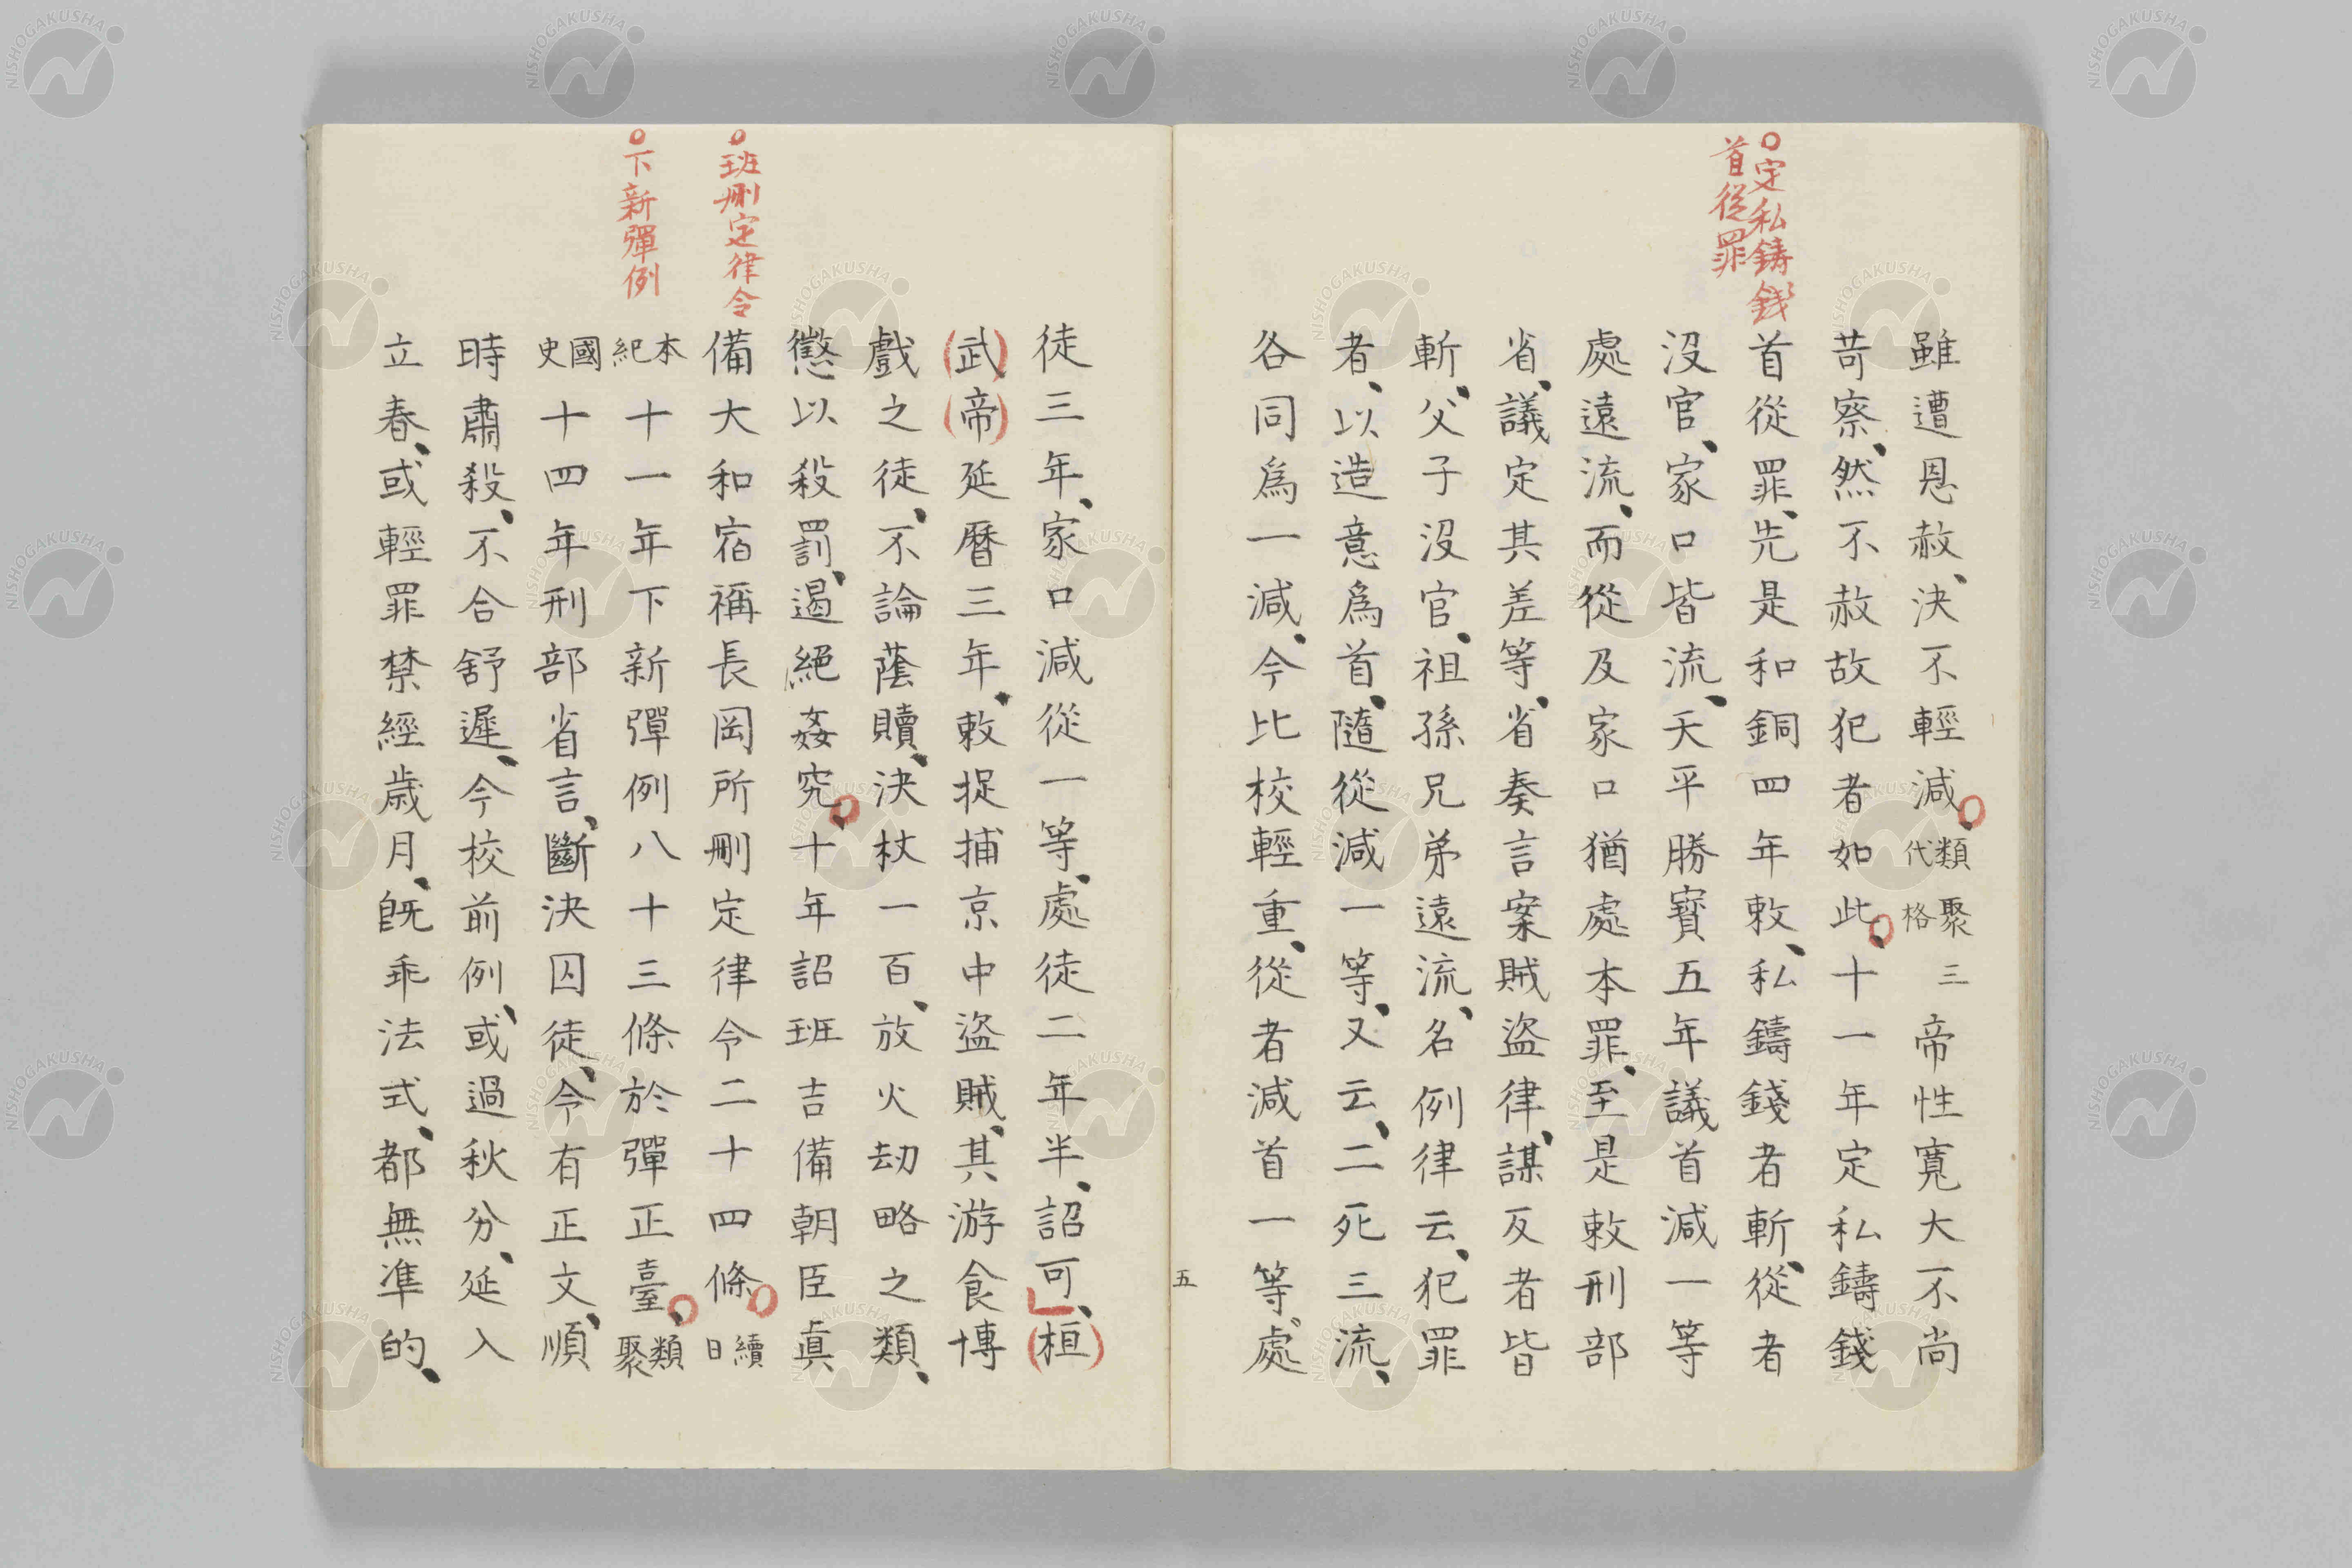 定私鋳錢
首從罪
雖遭恩赦、決不輕減、類聚三代格帝性寛大不尚
苛察、然不赦故犯者如此、十一年定私鑄錢
首從罪、先是和銅四年敕、私鑄錢者斬、從者
沒官、家口皆流、天平勝寳五年議首減一等
處遠流、而從及家口猶處本罪、至是敕刑部
省、議定其差等、省奏言案賊盜律、謀反者皆
斬、父子沒官、祖孫兄弟遠流、名例律云、犯罪
者、以造意爲首、隨從減一等、又云、二死三流、
各同爲一減、今比校輕重、從者減首一等、處
五
班刪定律令
下新彈例
徒三年、家口減從一等、處徒二年半、詔可、(桓)
(武)(帝)延暦三年、敕捉捕京中盜賊、其游食博
戲之徒、不論蔭贖、決杖一百、放火劫略之類、
懲以殺罰、遏絕姦究、十年詔班吉備朝臣眞
備大和宿禰長岡所刪定律令二十四條續日
本紀十一年下新彈例八十三條於彈正臺、類聚
國史十四年刑部省言、斷決囚徒、令有正文、順
時肅殺、不合舒遲、今校前例、或過秋分、延入
立春、或輕罪禁經歳月、旣乖法式、都無準的、
NISHOGAKUSHA